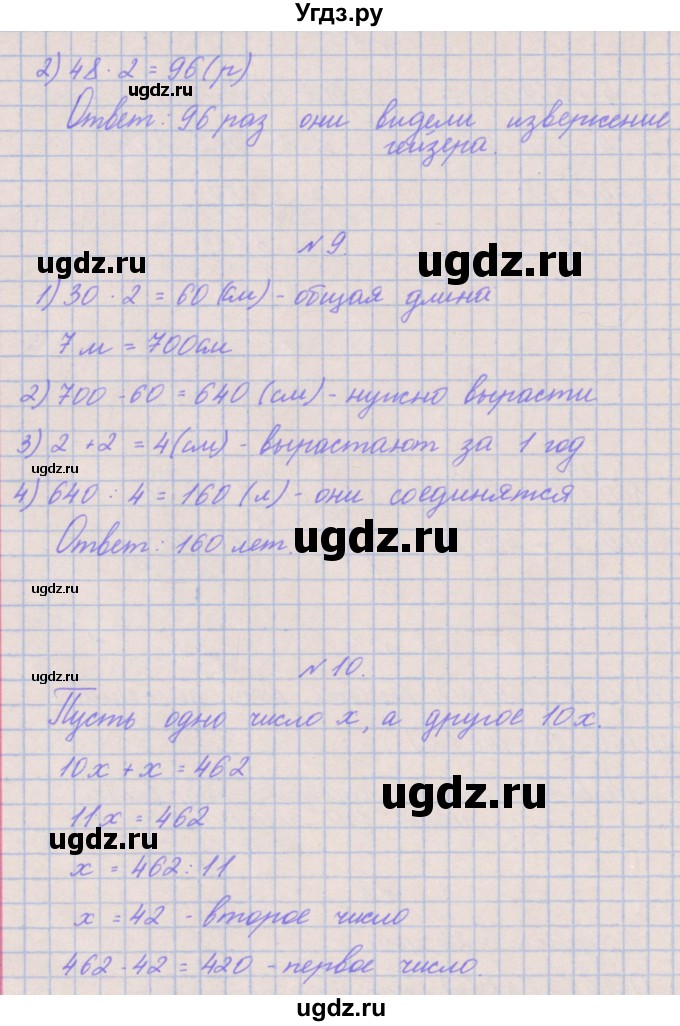 Угдз.ру
2) 48 · 2 = 96 (р)
ugdz.ru
Ответ: 96 раз они видели извержение
гейзера.
№ 9.
ugdz.ru ugdz.ru
1) 30 · 2 = 60 (см) - общая длина
7 м = 700 см
2) 700 - 60 = 640 (см) - нужно вырасти
3) 2 + 2 = 4 (см) - вырастают за 1 год
ugdz.ru
4) 640 : 4 = 160 (л) - они соединятся
Ответ: 160 лет.
ugdz.ru
ugdz.ru
№ 10.
ugdz.ru
Пусть одно число x, а другое 10x.
10x + x = 462
ugdz.ru
11x = 462
ugdz.ru
x = 462 : 11
x = 42 - второе число
462 - 42 = 420 - первое число.
ugdz.ru